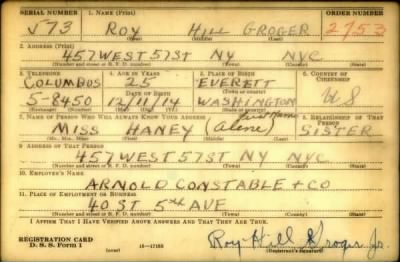 SERIAL NUMBER 1. NAME (Print) ORDER NUMBER
573 ROY HILL GROGER 2753
(First) (Middle) (Last)
2. ADDRESS (Print)
457 WEST 57 ST NY NYC
(Number and street or R. F. D. number) (Town) (County) (State)
3. TELEPHONE 4. AGE IN YEARS 5. PLACE OF BIRTH 6. COUNTRY OF CITIZENSHIP
COLUMBUS 25 EVERETT
DATE OF BIRTH (Town or county)
5-8450 12/11/14 WASHINGTON US
(Exchange) (Number) (Mo.) (Day) (Yr.) (State or country)
7. NAME OF PERSON WHO WILL ALWAYS KNOW YOUR ADDRESS 8. RELATIONSHIP OF THAT PERSON
first name
MISS HANEY (Alene) SISTER
(Mr., Mrs., Miss) (First) (Middle) (Last)
9. ADDRESS OF THAT PERSON
457 WEST 57 ST NY NYC
(Number and street or R. F. D. number) (Town) (County) (State)
10. EMPLOYER'S NAME
ARNOLD CONSTABLE + CO
11. PLACE OF EMPLOYMENT OR BUSINESS
40 ST 5TH AVE
(Number and street or R. F. D. number) (Town) (County) (State)
I AFFIRM THAT I HAVE VERIFIED ABOVE ANSWERS AND THAT THEY ARE TRUE.
REGISTRATION CARD
D. S. S. Form 1 16-17105 Roy Hill Groger Jr.
(Registrant's signature)